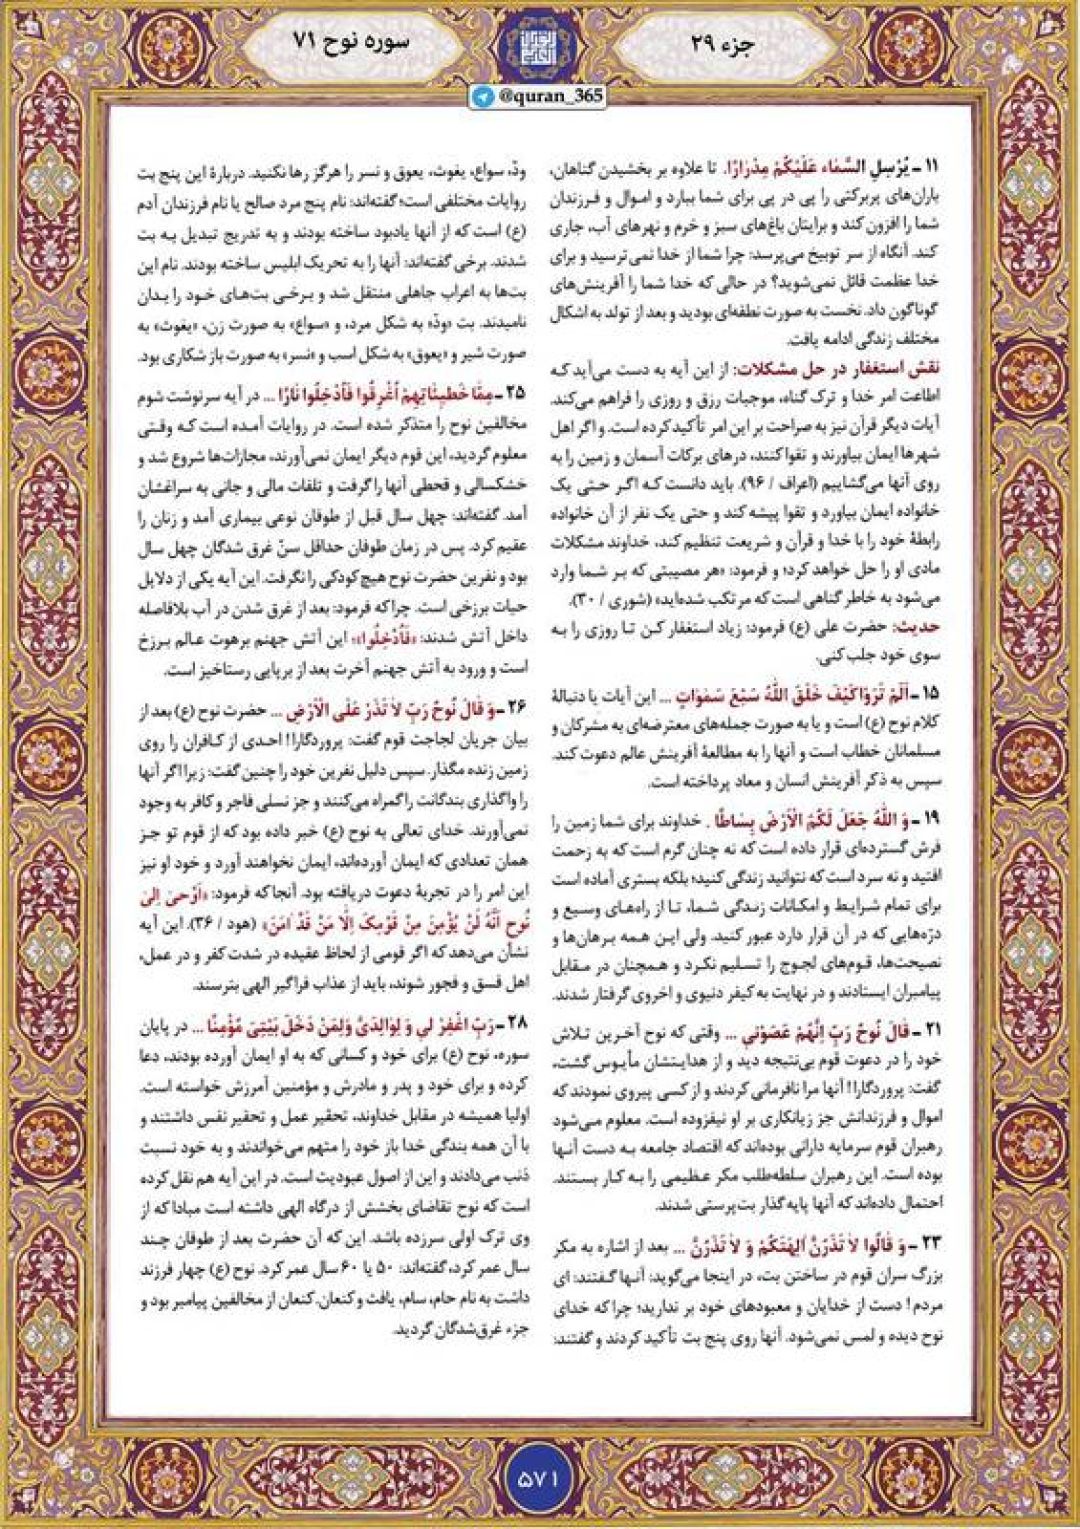 جزء ۲۹
سوره نوح ۷۱
@quran_365
۱۱ ـ یُرْسِلِ السَّمَاءَ عَلَیْکُمْ مِدْرَارًا. تا علاوه بر بخشیدن گناهان،
باران‌های پربرکتی را پی در پی برای شما ببارد و اموال و فرزندان
شما را افزون کند و برایتان باغ‌های سبز و خرم و نهرهای آب، جاری
کند. آنگاه از سر توبیخ می‌پرسد: چرا شما از خدا نمی‌ترسید و برای
خدا عظمت قائل نمی‌شوید؟ در حالی که خدا شما را آفرینش‌های
گوناگون داد. نخست به صورت نطفه‌ای بودید و بعد از تولد به اشکال
مختلف زندگی ادامه یافت.
نقش استغفار در حل مشکلات: از این آیه به دست می‌آید که
اطاعت امر خدا و ترک گناه، موجبات رزق و روزی را فراهم می‌کند.
آیات دیگر قرآن نیز به صراحت بر این امر تأکید کرده است. و اگر اهل
شهرها ایمان بیاورند و تقوا کنند، درهای برکات آسمان و زمین را به
روی آنها می‌گشاییم (اعراف / ۹۶). باید دانست که اگر حتی یک
خانواده ایمان بیاورد و تقوا پیشه کند و حتی یک نفر از آن خانواده
رابطهٔ خود را با خدا و قرآن و شریعت تنظیم کند، خداوند مشکلات
مادی او را حل خواهد کرد؛ و فرمود: «هر مصیبتی که بر شما وارد
می‌شود به خاطر گناهی است که مرتکب شده‌اید» (شوری / ۳۰).
حدیث: حضرت علی (ع) فرمود: زیاد استغفار کن تا روزی را به
سوی خود جلب کنی.
۱۵ ـ اَلَمْ تَرَوْا کَیْفَ خَلَقَ اللهُ سَبْعَ سَمٰوَاتٍ ... این آیات یا دنبالهٔ
کلام نوح (ع) است و یا به صورت جمله‌های معترضه‌ای به مشرکان و
مسلمانان خطاب است و آنها را به مطالعهٔ آفرینش عالم دعوت کند.
سپس به ذکر آفرینش انسان و معاد پرداخته است.
۱۹ ـ وَ اللهُ جَعَلَ لَکُمُ الْاَرْضَ بِسَاطًا . خداوند برای شما زمین را
فرش گسترده‌ای قرار داده است که نه چنان گرم است که به زحمت
افتید و نه سرد است که نتوانید زندگی کنید؛ بلکه بستری آماده است
برای تمام شرایط و امکانات زندگی شما، تا از راه‌های وسیع و
دره‌هایی که در آن قرار دارد عبور کنید. ولی این همه برهان‌ها و
نصیحت‌ها، قوم‌های لجوج را تسلیم نکرد و همچنان در مقابل
پیامبران ایستادند و در نهایت به کیفر دنیوی و اخروی گرفتار شدند.
۲۱ ـ قَالَ نُوحٌ رَبِّ اِنَّهُمْ عَصَوْنِی ... وقتی که نوح آخرین تلاش
خود را در دعوت قوم بی‌نتیجه دید و از هدایتشان مأیوس گشت،
گفت: پروردگارا! آنها مرا نافرمانی کردند و از کسی پیروی نمودند که
اموال و فرزندانش جز زیانکاری بر او نیفزوده است. معلوم می‌شود
رهبران قوم سرمایه دارانی بوده‌اند که اقتصاد جامعه به دست آنها
بوده است. این رهبران سلطه‌طلب مکر عظیمی را به کار بستند.
احتمال داده‌اند که آنها پایه‌گذار بت‌پرستی شدند.
۲۳ ـ وَ قَالُوا لَا تَذَرُنَّ اٰلِهَتَکُمْ وَ لَا تَذَرُنَّ ... بعد از اشاره به مکر
بزرگ سران قوم در ساختن بت، در اینجا می‌گوید: آنها گفتند: ای
مردم! دست از خدایان و معبودهای خود بر ندارید؛ چرا که خدای
نوح دیده و لمس نمی‌شود. آنها روی پنج بت تأکید کردند و گفتند:
ودّ، سواع، یغوث، یعوق و نسر را هرگز رها نکنید. دربارهٔ این پنج بت
روایات مختلفی است؛ گفته‌اند: نام پنج مرد صالح یا نام فرزندان آدم
(ع) است که از آنها یادبود ساخته بودند و به تدریج تبدیل به بت
شدند. برخی گفته‌اند: آنها را به تحریک ابلیس ساخته بودند. نام این
بت‌ها به اعراب جاهلی منتقل شد و برخی بت‌های خود را بدان
نامیدند. بت «ودّ» به شکل مرد، و «سواع» به صورت زن، «یغوث» به
صورت شیر و «یعوق» به شکل اسب و «نسر» به صورت باز شکاری بود.
۲۵ ـ مِمَّا خَطِیئَاتِهِمْ اُغْرِقُوا فَاُدْخِلُوا نَارًا ... در آیه سرنوشت شوم
مخالفین نوح را متذکر شده است. در روایات آمده است که وقتی
معلوم گردید، این قوم دیگر ایمان نمی‌آورند، مجازات‌ها شروع شد و
خشکسالی و قحطی آنها را گرفت و تلفات مالی و جانی به سراغشان
آمد. گفته‌اند: چهل سال قبل از طوفان نوعی بیماری آمد و زنان را
عقیم کرد. پس در زمان طوفان حداقل سنّ غرق شدگان چهل سال
بود و نفرین حضرت نوح هیچ کودکی را نگرفت. این آیه یکی از دلایل
حیات برزخی است. چرا که فرمود: بعد از غرق شدن در آب بلافاصله
داخل آتش شدند: «فَاُدْخِلُوا» این آتش جهنم برهوت عالم برزخ
است و ورود به آتش جهنم آخرت بعد از برپایی رستاخیز است.
۲۶ ـ وَ قَالَ نُوحٌ رَبِّ لَا تَذَرْ عَلَی الْاَرْضِ ... حضرت نوح (ع) بعد از
بیان جریان لجاجت قوم گفت: پروردگارا! احدی از کافران را روی
زمین زنده مگذار. سپس دلیل نفرین خود را چنین گفت: زیرا اگر آنها
را واگذاری بندگانت را گمراه می‌کنند و جز نسلی فاجر و کافر به وجود
نمی‌آورند. خدای تعالی به نوح (ع) خبر داده بود که از قوم تو جز
همان تعدادی که ایمان آورده‌اند، ایمان نخواهند آورد و خود او نیز
این امر را در تجربهٔ دعوت دریافته بود. آنجا که فرمود: «اُوحِیَ اِلیٰ
نُوحٍ اَنَّهُ لَنْ یُؤْمِنَ مِنْ قَوْمِکَ اِلَّا مَنْ قَدْ اٰمَنَ» (هود / ۳۶). این آیه
نشان می‌دهد که اگر قومی از لحاظ عقیده در شدت کفر و در عمل،
اهل فسق و فجور شوند، باید از عذاب فراگیر الهی بترسند.
۲۸ ـ رَبِّ اغْفِرْ لِی وَ لِوَالِدَیَّ وَلِمَنْ دَخَلَ بَیْتِیَ مُؤْمِنًا ... در پایان
سوره، نوح (ع) برای خود و کسانی که به او ایمان آورده بودند، دعا
کرده و برای خود و پدر و مادرش و مؤمنین آمرزش خواسته است.
اولیا همیشه در مقابل خداوند، تحقیر عمل و تحقیر نفس داشتند و
با آن همه بندگی خدا باز خود را متهم می‌خواندند و به خود نسبت
ذنب می‌دادند و این از اصول عبودیت است. در این آیه هم نقل کرده
است که نوح تقاضای بخشش از درگاه الهی داشته است مبادا که از
وی ترک اولی سرزده باشد. این که آن حضرت بعد از طوفان چند
سال عمر کرد، گفته‌اند: ۵۰ یا ۶۰ سال عمر کرد. نوح (ع) چهار فرزند
داشت به نام حام، سام، یافث و کنعان. کنعان از مخالفین پیامبر بود و
جزء غرق‌شدگان گردید.
۵۷۱